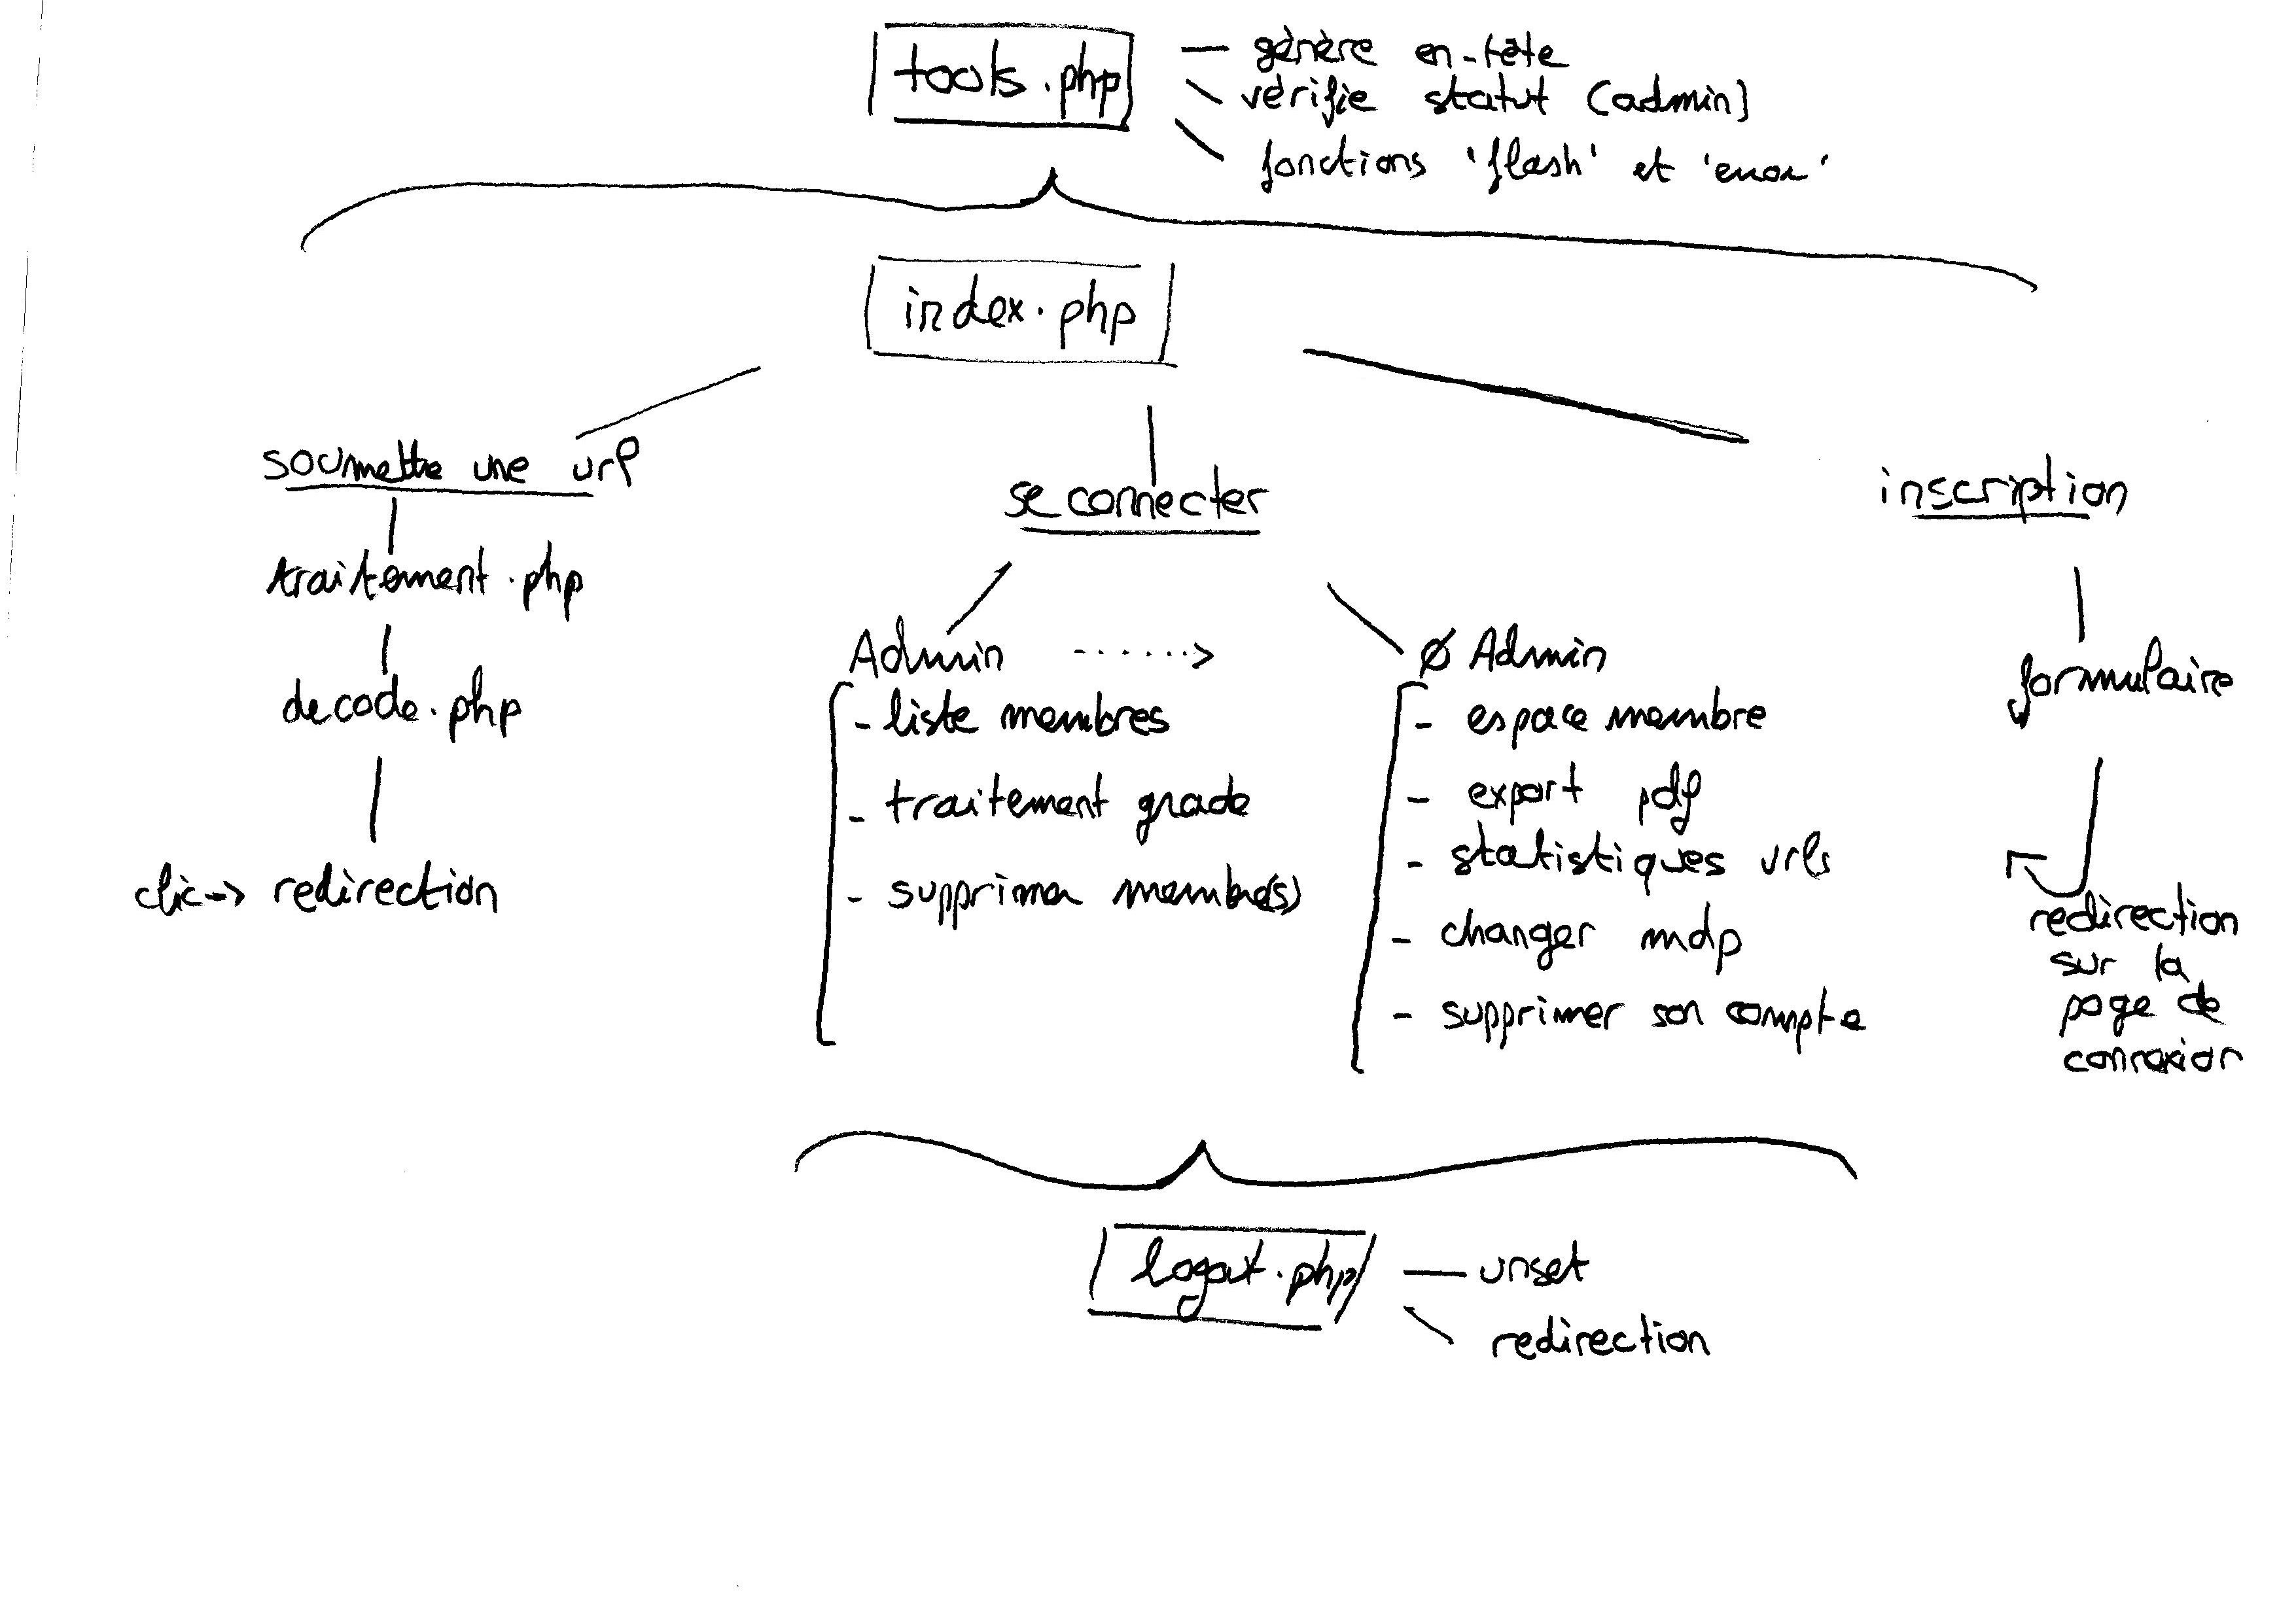 tools.php
— génère en-tête
vérifie statut (admin)
fonctions 'flash' et 'error'
index.php
soumettre une url
se connecter
inscription
traitement.php
decode.php
clic -> redirection
Admin ......> Ø Admin
- liste membres
- traitement grade
- supprimer membre(s)
- espace membre
- export pdf
- statistiques urls
- changer mdp
- supprimer son compte
formulaire
redirection
sur la
page de
connexion
logout.php
— unset
redirection